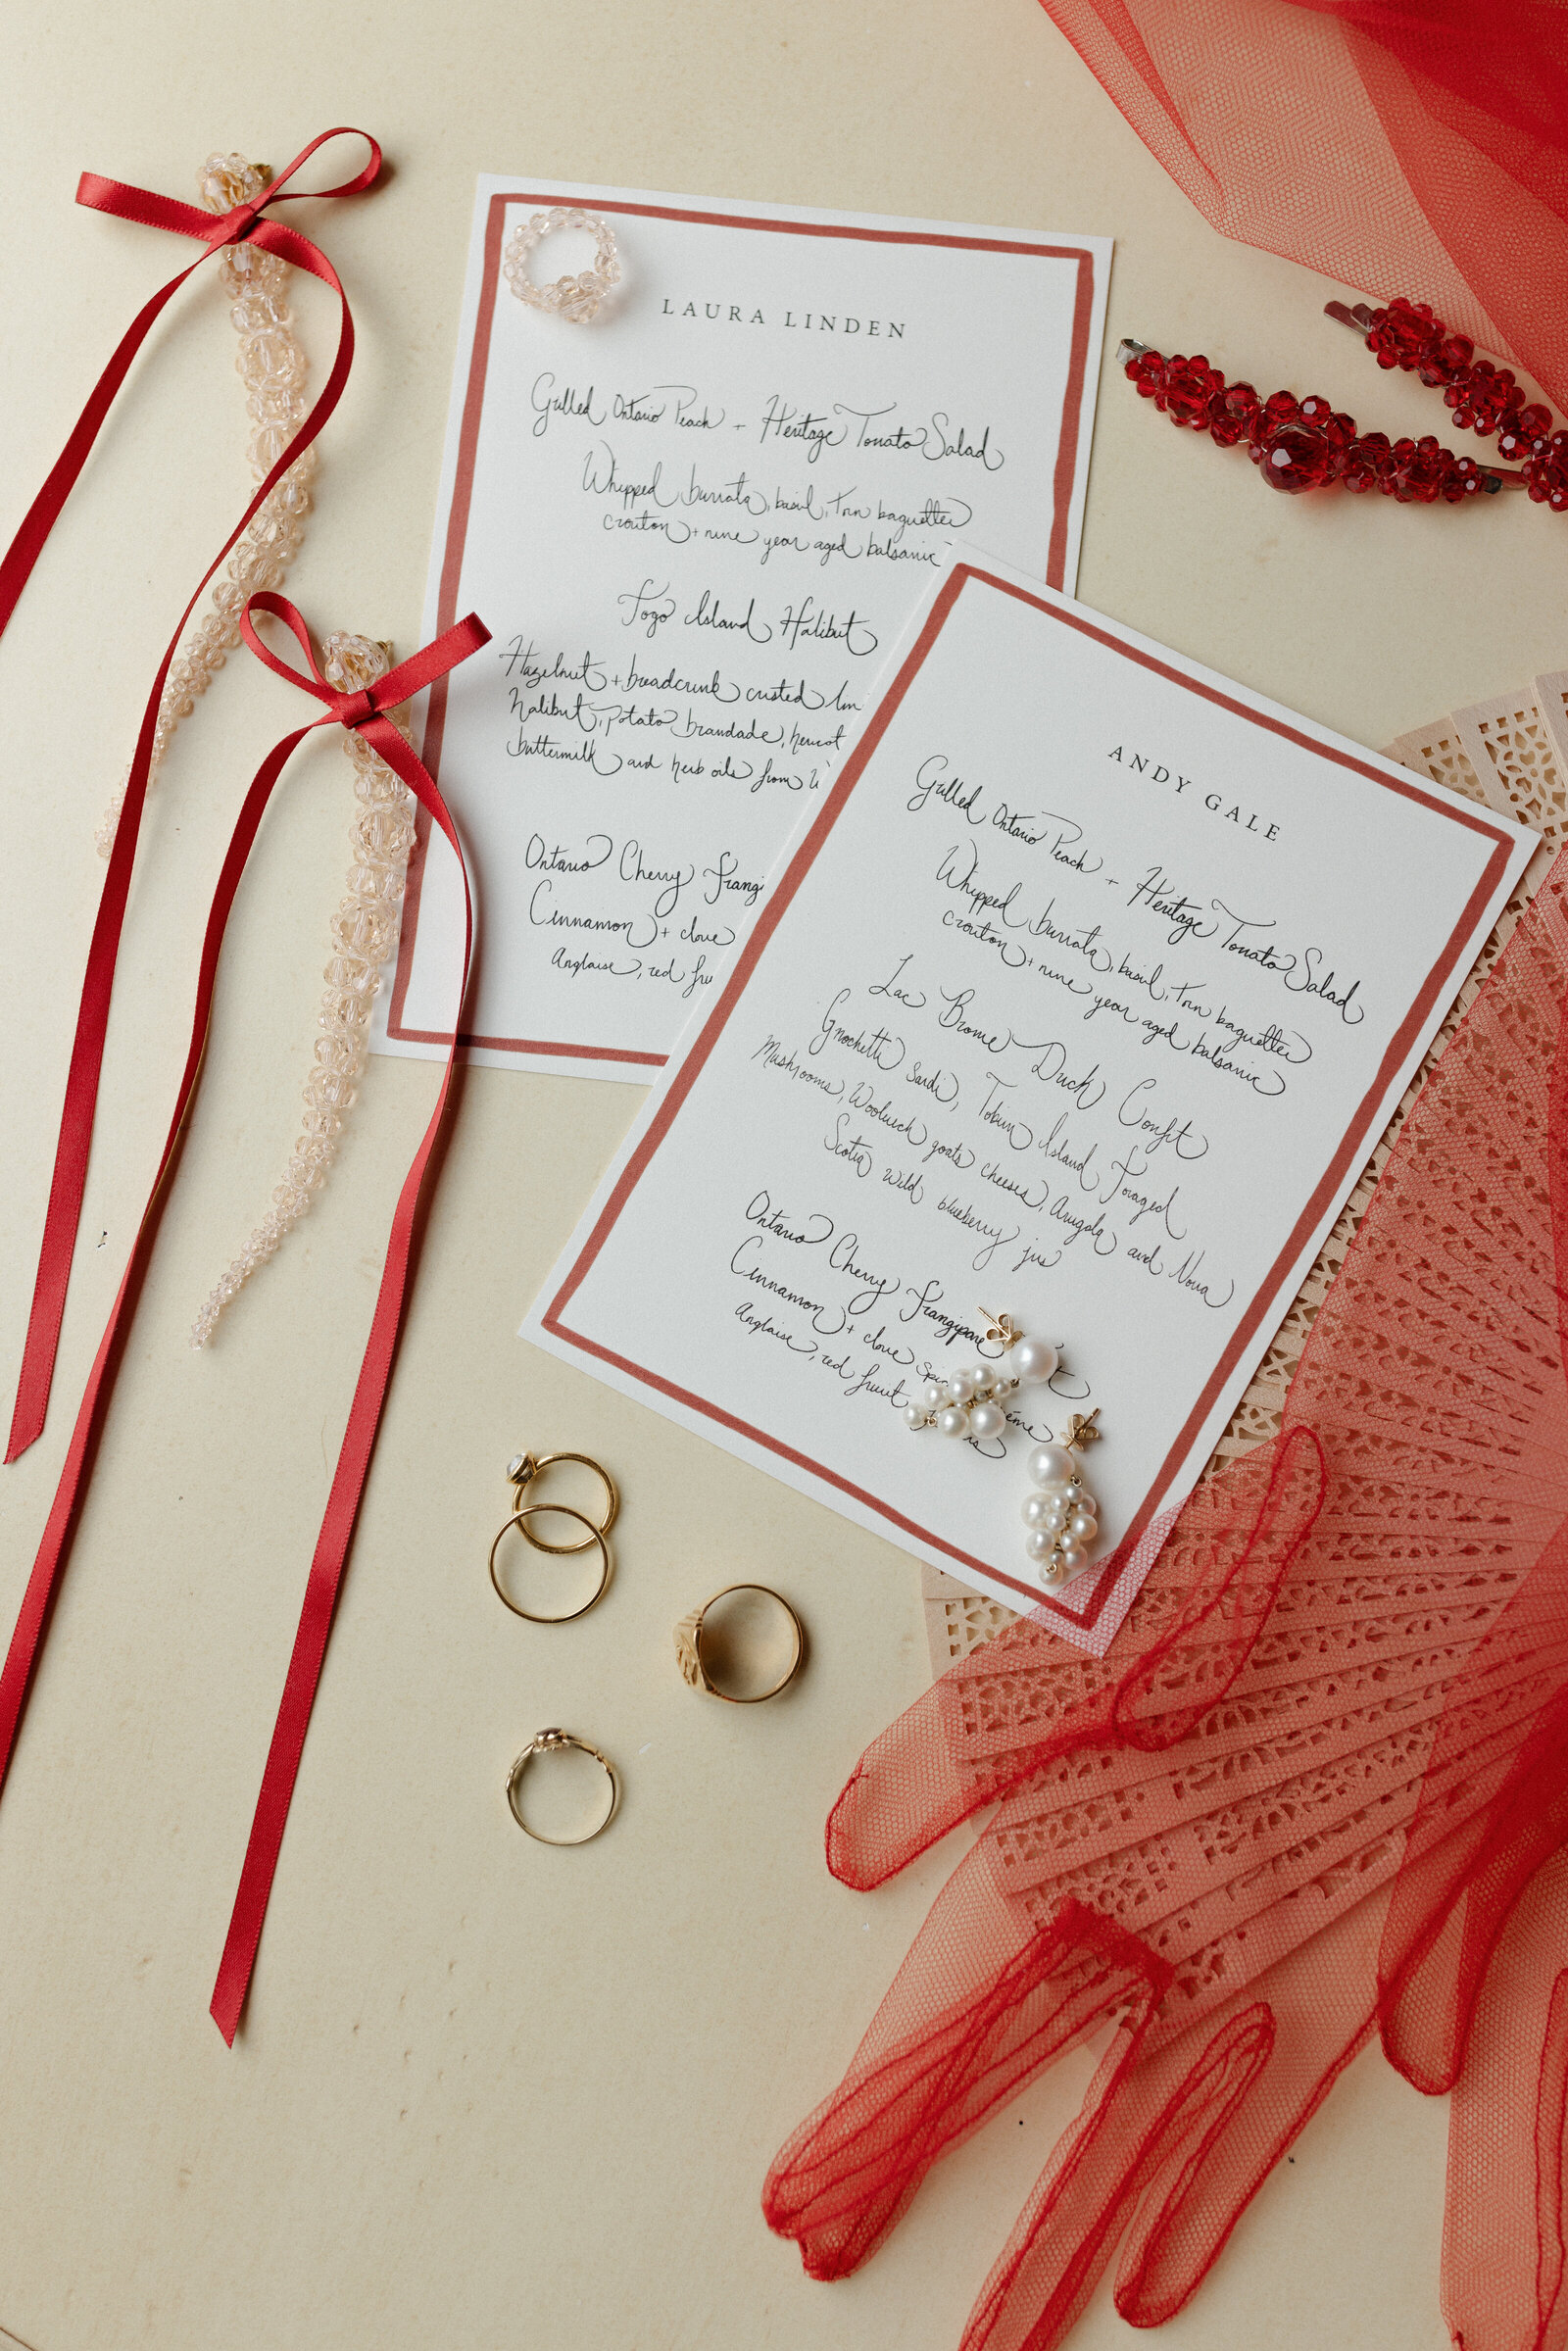 LAURA LINDEN
Grilled Ontario Peach + Heritage Tomato Salad
Whipped burrata, basil, torn baguette
crouton + nine year aged balsamic
Fogo Island Halibut
Hazelnut + breadcrumb crusted
halibut, potato brandade,
buttermilk and herb oils from
Ontario Cherry Frangi
Cinnamon + clove
Anglaise, red fru
ANDY GALE
Grilled Ontario Peach + Heritage Tomato Salad
Whipped burrata, basil, torn baguette
crouton + nine year aged balsamic
Lac Brome Duck Confit
Gnochetti Sardi, Tobin Island Foraged
Mushrooms, Woolwich goats cheeses, Arugola and Nova
Scotia wild blueberry jus
Ontario Cherry Frangipane
Cinnamon + clove
Anglaise, red fruit